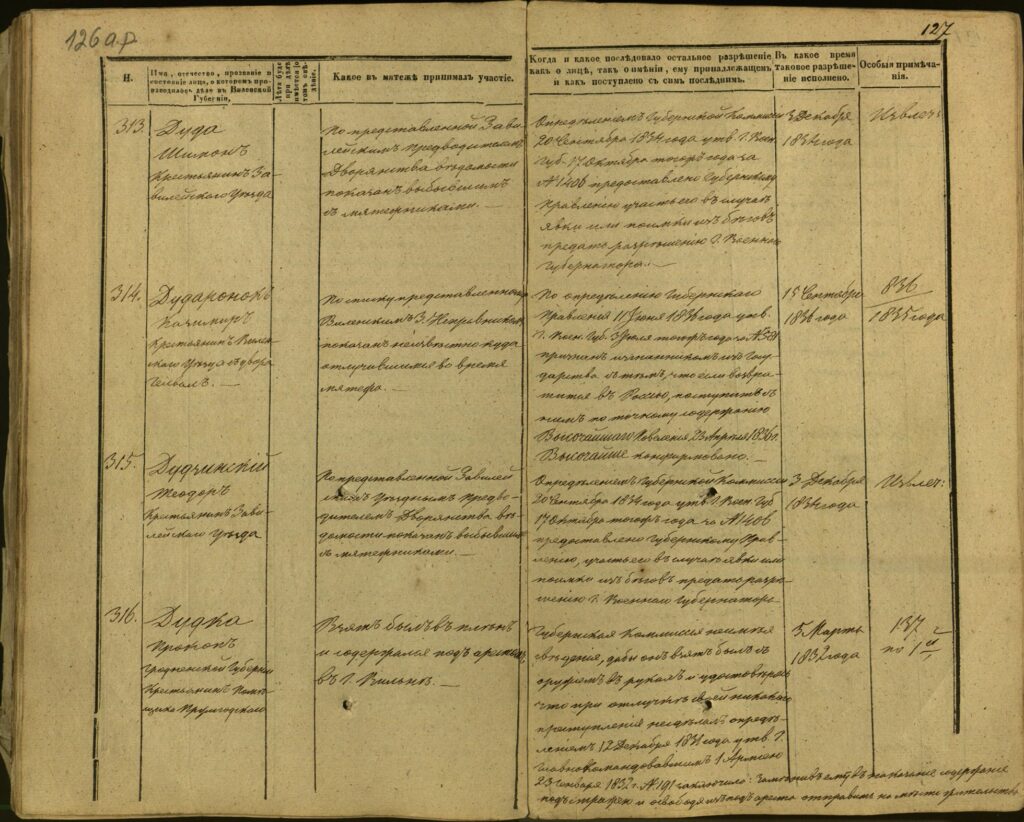 126 а.р
127
Н.
Имя, отечество, прозваніе и
состояніе лица, о которомъ про-
изводилось дѣло въ Виленской
Губерніи,
Какое въ мятежѣ принималъ участіе.
Когда и какое послѣдовало остальное разрѣшеніе
какъ о лицѣ, такъ о имѣніи, ему принадлежащемъ
и какъ поступлено съ симъ послѣднимъ.
Въ какое время
таковое разрѣше-
ніе исполнено.
Особыя примѣча-
нія.
313.
Дуда
Шимонъ
Крестьянинъ За-
вилейскаго Уѣзда
По представленной Зави-
лейскимъ Предводителемъ
Дворянства вѣдомости
показанъ выбывшимъ
съ мятежниками. —
Опредѣленіемъ Губернской Коммисіи
20 Сентября 1834 года утв. Г. Воен.
Губ. 17 Октября тогожъ года за
№ 1406 предоставлено Губернскому
Правленію участь его въ случаѣ
явки или поимки изъ бѣговъ
предать разрѣшенію Г. Военнаго
Губернатора. —
3 Декабря
1834 года
Извлеч:
314.
Дударонокъ
Казимиръ
Крестьянинъ Вилен-
скаго Уѣзда съ двора
По списку представленному
Виленскимъ З. Исправникомъ
показанъ неизвѣстно куда
отлучившимся во время
мятежа.
По опредѣленію Губернскаго
Правленія 11 Іюня 1836 года утв.
Г. Воен. Губ. 3 Іюля тогожъ года за №
признанъ изгнанникомъ изъ Госу-
дарства съ тѣмъ, что если возвра-
тится въ Россію, поступить съ
нимъ по точному содержанію
Высочайшаго Повелѣнія 23 Апрѣля 1836 г.
Высочайше конфирмовано. —
15 Сентября
1836 года
836
1835 года
315.
Дудчинскій
Ѳеодоръ
Крестьянинъ Зави-
лейскаго Уѣзда
По представленной Завилей-
скимъ Уѣзднымъ Предво-
дителемъ Дворянства вѣ-
домости показанъ выбывшимъ
съ мятежниками. —
Опредѣленіемъ Губернской Коммисіи
20 Сентября 1834 года утв. Г. Воен. Губ.
17 Октября тогожъ года за № 1406
предоставлено Губернскому Прав-
ленію, участь его въ случаѣ явки или
поимки изъ бѣговъ предать разрѣ-
шенію Г. Военнаго Губернатора
3 Декабря
1834 года
Извлеч:
316.
Дудка
Прокопъ
Гродненской Губерніи
Крестьянинъ Помѣ-
щика
Взятъ былъ въ плѣнъ
и содержался подъ арестомъ
въ Г. Вильнѣ. —
Губернская Коммисія неимѣя
свѣденія, дабы онъ взятъ былъ съ
оружіемъ въ рукахъ и удостовѣрясь
что при отлучкѣ своей никакого
преступленія несдѣлалъ опредѣ-
леніемъ 12 Декабря 1831 года утв. Г.
Главнокомандовавшимъ 1 Арміею
23 Генваря 1832 г. № 191 заключила: замѣнивъ ему въ наказаніе содержаніе
подъ стражею и освободя изъ подъ ареста отправить на мѣсто жительства
5 Марта
1832 года
137
по 1й